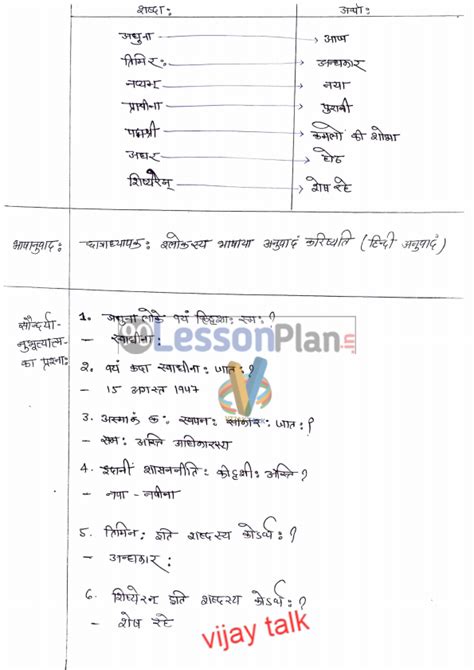 शब्दाः अर्थाः
अधुना आज
तिमिरः अन्धकार
नव्यम् नया
प्राचीना पुरानी
पद्मश्री कमलों की शोभा
अधर होठ
शिष्येरन् शेष रहे
भाषानुवादः छात्राध्यापकः श्लोकस्य भाषायां अनुवादं करिष्यति (हिन्दी अनुवाद)
सौन्दर्या-
नुभूत्यात्म-
का प्रश्नाः
1. अधुना लोके वयं स्मः?
LessonPlan
- स्वाधीनाः
2. वयं कदा स्वाधीनाः जातः?
- 15 अगस्त 1947
3. अस्माकं कः स्वप्नः साकारः जातः?
- समः अस्ति अधिकारस्य
4. इदानीं शासननीतिः कीदृशी अस्ति?
- नवा - नवीना
5. तिमिरः इति शब्दस्य कोऽर्थः?
- अन्धकारः
6. शिष्येरन् इति शब्दस्य कोऽर्थः?
- शेष रहे
vijay talk